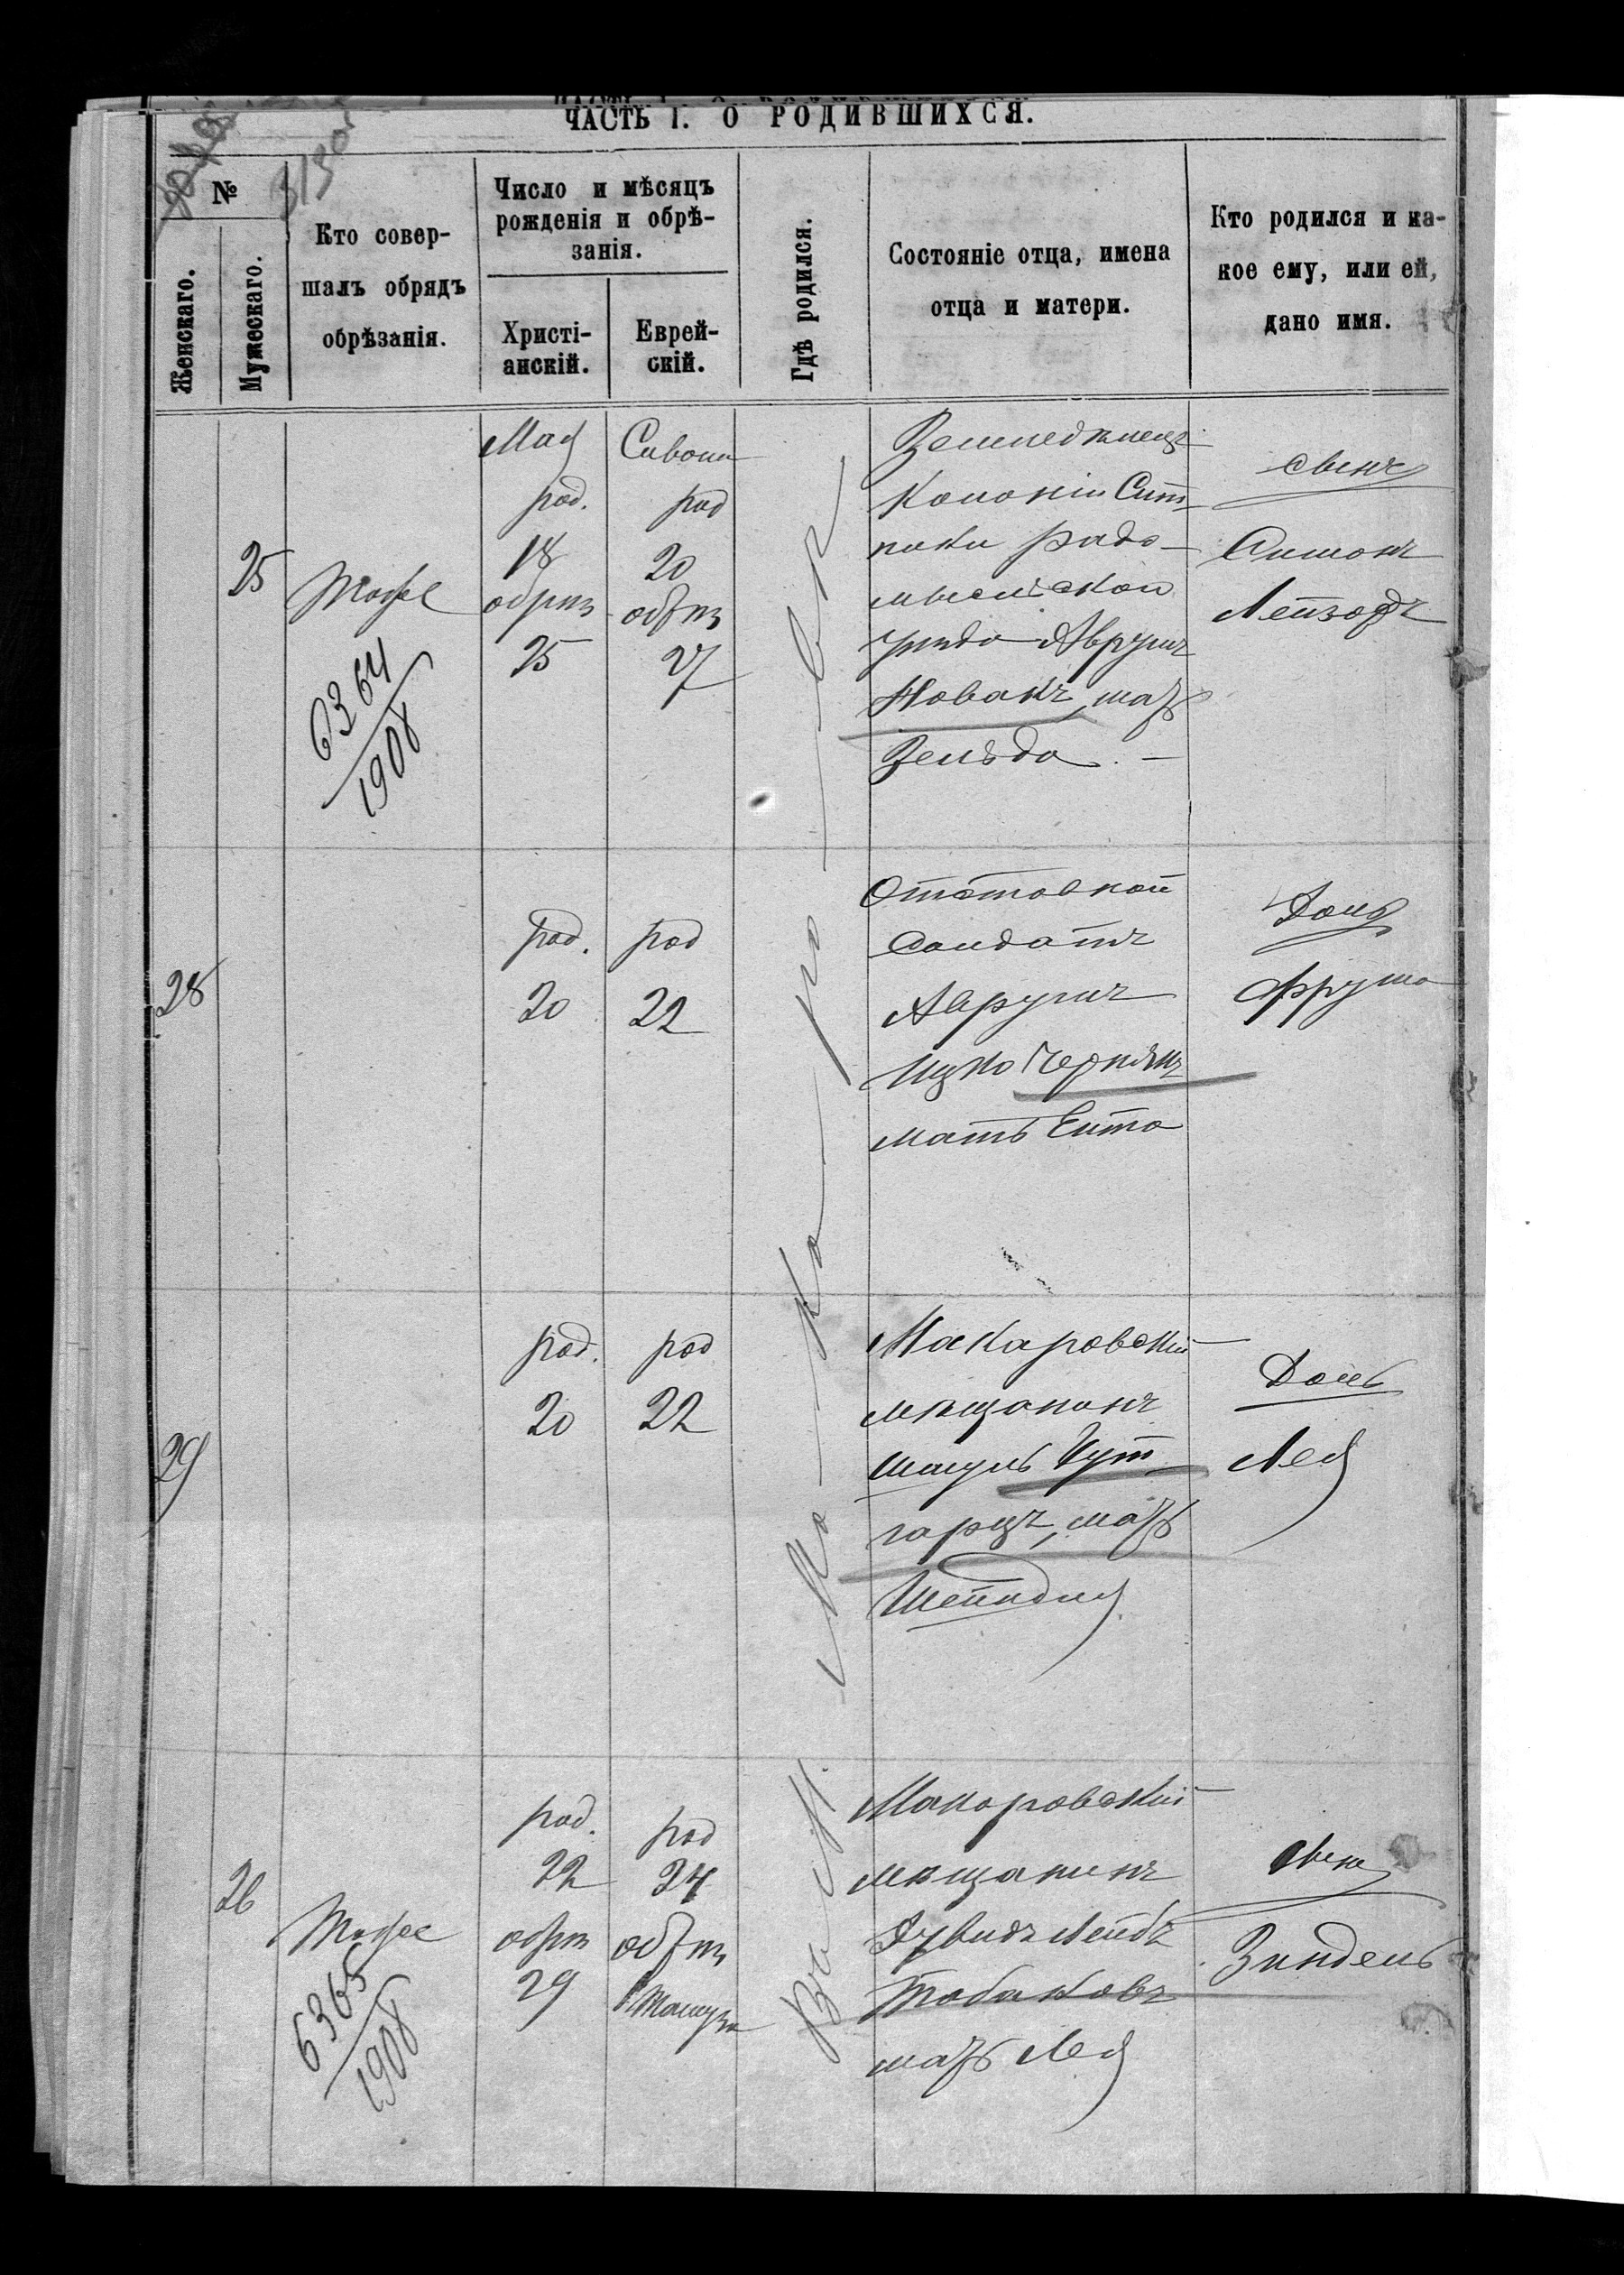 ЧАСТЬ I. О РОДИВШИХСЯ.
№
Женскаго.
Мужескаго.
Кто совер-
шалъ обрядъ
обрѣзанія.
Число и мѣсяцъ
рожденія и обрѣ-
занія.
Христі-
анскій.
Еврей-
скій.
Гдѣ родился.
Состояніе отца, имена
отца и матери.
Кто родился и ка-
кое ему, или ей,
дано имя.
В М. Ма-ка-ро-вѣ
25
6364
1908
Мая
род.
18
обрѣз
25
Сивана
род
20
обрѣз
27
Земледѣлецъ
Колоніи Сит
няки Радо-
мысльской
уѣзда Аврумъ
Новакъ, мать
Зельда. —
сынъ
Симонъ
Лейзоръ
28
род.
20
род
22
Отставной
Солдатъ
Аврумъ
Ицко Чернякъ
мать Ента
Дочь
Фрума
29
род.
20
род
22
Макаровскій
мѣщанинъ
Шмуль Гут
гарцъ, мать
Шейндля
Дочь
Лея
26
6365
1908
род.
22
обрѣз
29
род
24
обрѣз
1 Тамуза
Макаровскій
мѣщанинъ
Дувидъ Лейбъ
Табаковъ
мать Лея
сынъ
Зиндель